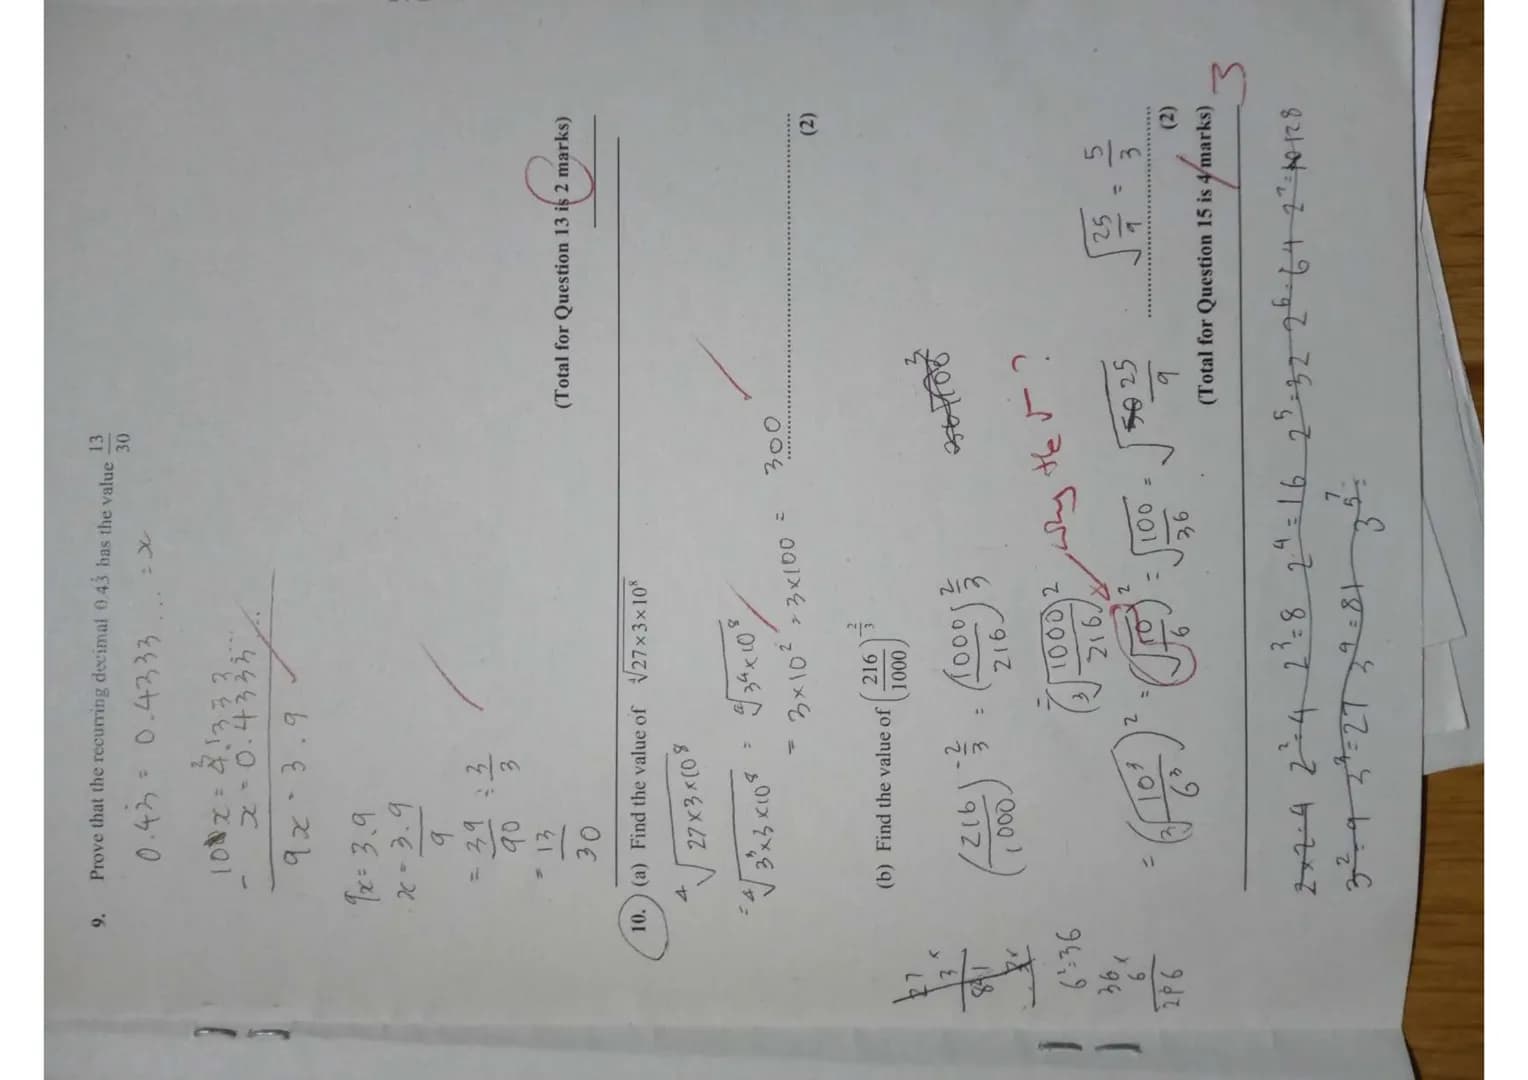 9. Prove that the recurring decimal 0.43̇ has the value 13/30
0.43̇ = 0.4333... = x
10x = 4.333
- x = 0.4333...
9x = 3.9
9x = 3.9
x = 3.9/9
= 39/90 ÷ 3/3
= 13/30
(Total for Question 13 is 2 marks)
10. (a) Find the value of ∜(27 × 3 × 10⁸)
∜(27×3×10⁸)
= ∜(3³×3×10⁸) = ∜(3⁴×10⁸)
= 3×10² = 3×100 = 300
(2)
(b) Find the value of (216/1000)^(-2/3)
(216/1000)^(-2/3) = (1000/216)^(2/3)
= (∛(1000/216))²
why the √?
= (∛(10³/6³))² = (√(10/6))² = √(100/36) = √(25/9)
√(25/9) = 5/3
(2)
(Total for Question 15 is 4 marks)
3
27
3 ×
81
6²=36
36 ×
6
216
2×2=4 2²=4 2³=8 2⁴=16 2⁵=32 2⁶=64 2⁷=128
3²=9 3³=27 3⁴=81